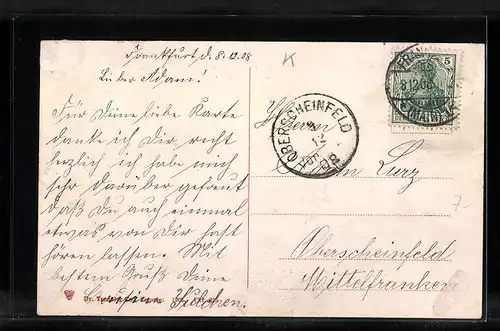 Frankfurt, d. 8.12.08
Lieber Adam!
Für Deine liebe Karte
danke ich Dir recht
herzlich ich habe mich
sehr darüber gefreut
daß Du auch einmal
etwas von Dir hast
hören lassen. Mit
bestem Gruß Deine
Julchen.
K
OBERSCHEINFELD
8
12
08
5
8.12.08
(MAIN)
Herrn
Adam Lurz
Oberscheinfeld
Mittelfranken
7.-